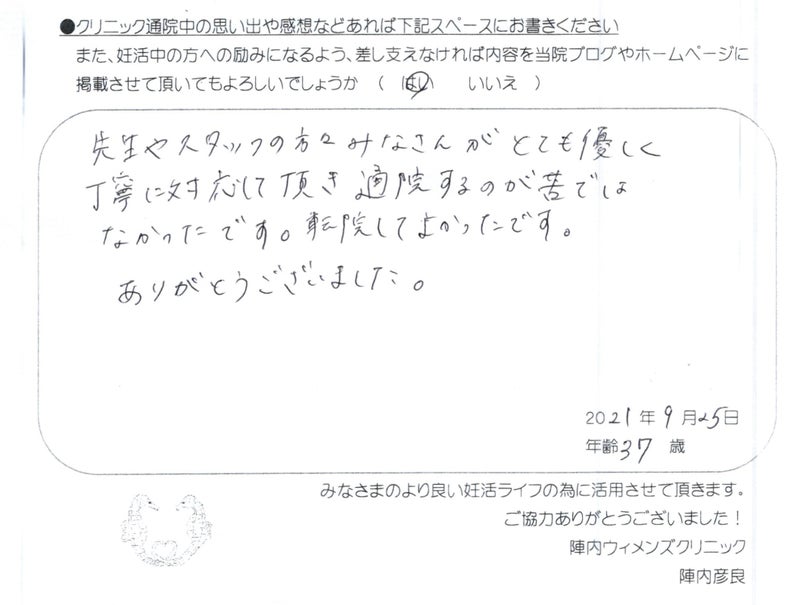 ●クリニック通院中の思い出や感想などあれば下記スペースにお書きください
また、妊活中の方への励みになるよう、差し支えなければ内容を当院ブログやホームページに
掲載させて頂いてもよろしいでしょうか （ はい いいえ ）
先生やスタッフの方々みなさんがとても優しく
丁寧に対応して頂き通院するのが苦では
なかったです。転院してよかったです。
ありがとうございました。
2021年9月25日
年齢37歳
みなさまのより良い妊活ライフの為に活用させて頂きます。
ご協力ありがとうございました！
陣内ウィメンズクリニック
陣内彦良